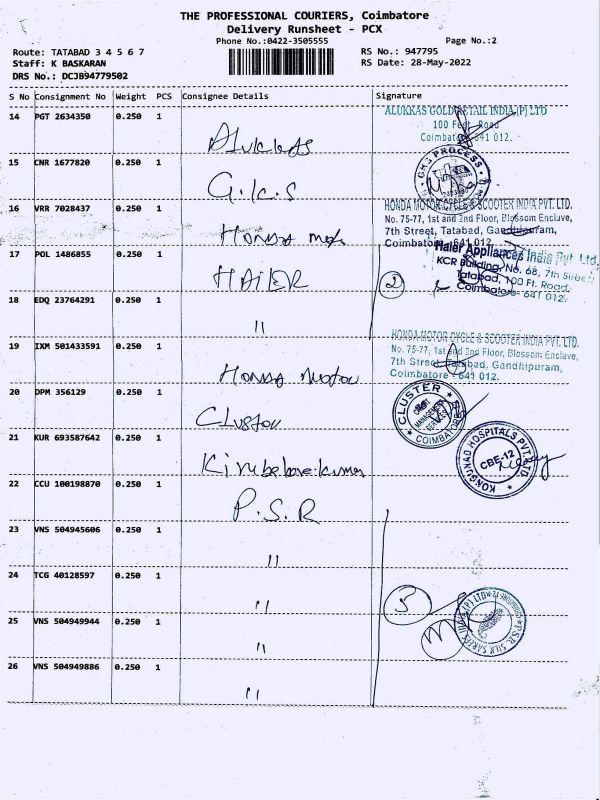 THE PROFESSIONAL COURIERS, Coimbatore
Delivery Runsheet - PCX
Phone No.:0422-3505555
Page No.:2
Route: TATABAD 3 4 5 6 7
RS No.: 947795
Staff: K BASKARAN
RS Date: 28-May-2022
DRS No.: DCJB94779502
S No Consignment No Weight PCS Consignee Details Signature
14 PGT 2634350 0.250 1 Alukkas
ALUKKAS GOLD RETAIL INDIA (P) LTD
100 Feet Road
Coimbatore 641 012.
15 CNR 1677820 0.250 1 G.K.S
PROCESS
16 VRR 7028437 0.250 1 HONDA
HONDA MOTOR CYCLE & SCOOTER INDIA PVT. LTD.
No. 75-77, 1st and 2nd Floor, Blossom Enclave,
7th Street, Tatabad, Gandhipuram,
Coimbatore - 641 012.
17 POL 1486855 0.250 1 HAIER
Haier Appliances India Pvt. Ltd.
KCR Building, No. 68, 7th Street
Tatabad, 100 Ft. Road,
Coimbatore- 641 012.
2
18 EDQ 23764291 0.250 1 "
19 IXM 501433591 0.250 1 HONDA Motor
HONDA MOTOR CYCLE & SCOOTER INDIA PVT. LTD.
No. 75-77, 1st and 2nd Floor, Blossom Enclave,
7th Street, Tatabad, Gandhipuram,
Coimbatore - 641 012.
20 DPM 356129 0.250 1
CLUSTER
COIMBATORE
21 KUR 693587642 0.250 1
KONGUNAD HOSPITALS PVT. LTD.
CBE-12
22 CCU 100198870 0.250 1 P.S.R
23 VNS 504945606 0.250 1 "
24 TCG 40128597 0.250 1 "
5
25 VNS 504949944 0.250 1 "
P.S.R. SILK SAREES INDIA (P) LTD
26 VNS 504949886 0.250 1 "